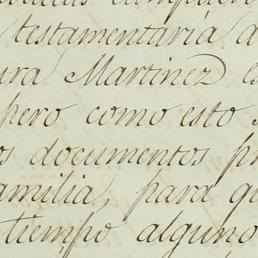 testamentaría a
ura Martinez es
pero como esto
os documentos pr
amilia, para qu
tiempo alguno